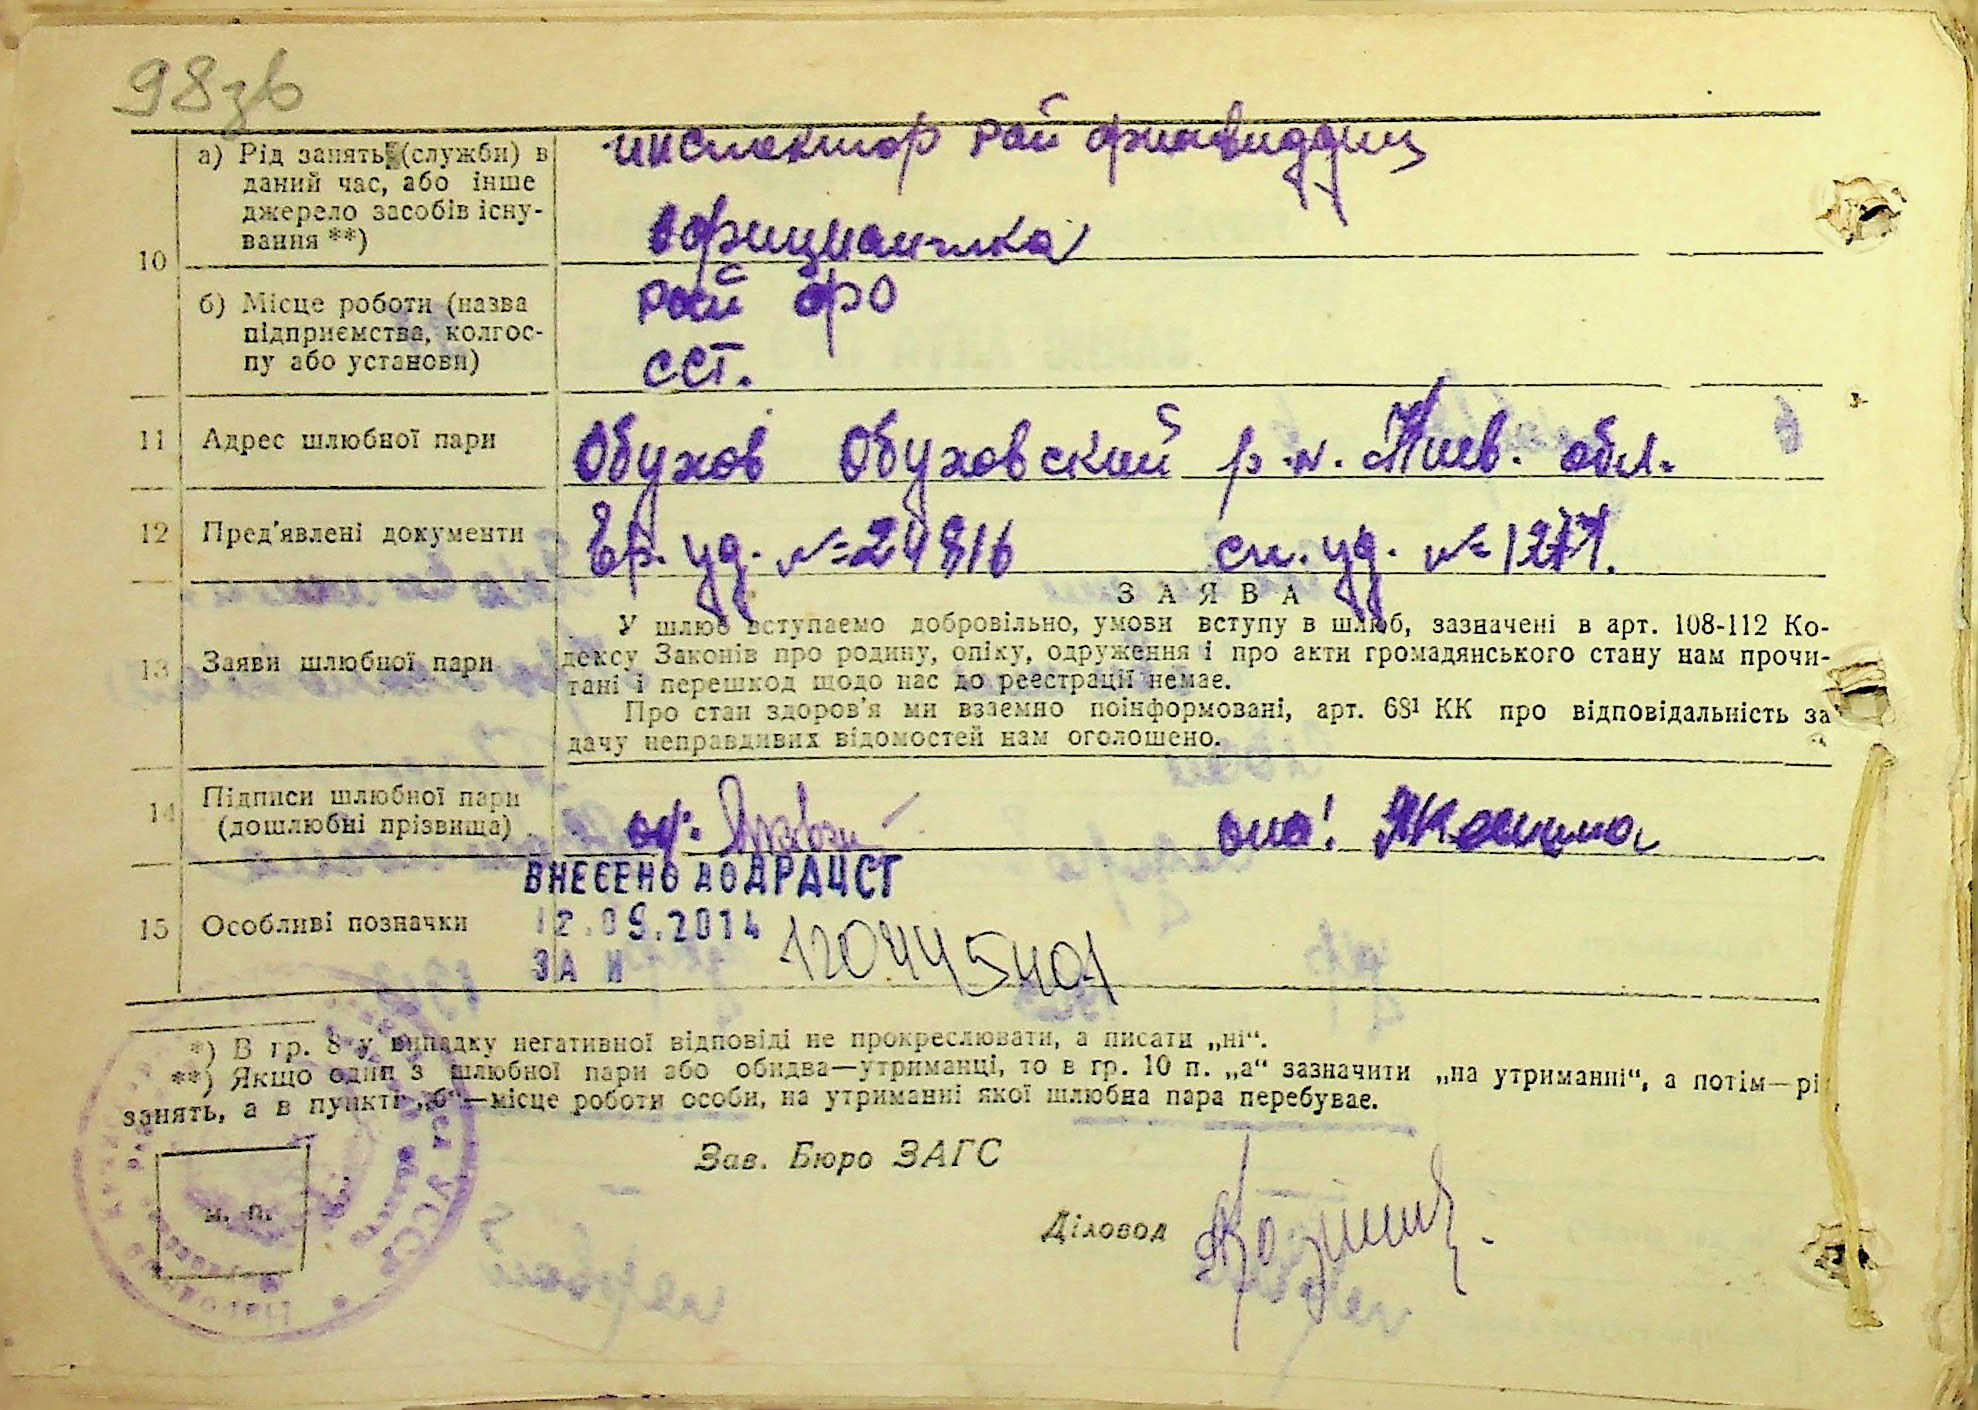 98зв
а) Рід занять (служби) в
даний час, або інше
джерело засобів існу-
вання **)
инспектор рай
официантка
10
б) Місце роботи (назва
підприємства, колгос-
пу або установи)
рай фо
ССТ.
11 Адрес шлюбної пари
Обухов Обуховский р.н. Киев. обл.
12 Пред'явлені документи
Вр. уд. №=24816 сп. уд. №=1271.
13 Заяви шлюбної пари
ЗАЯВА
У шлюб вступаємо добровільно, умови вступу в шлюб, зазначені в арт. 108-112 Ко-
дексу Законів про родину, опіку, одруження і про акти громадянського стану нам прочи-
тані і перешкод щодо нас до реєстрації немає.
Про стан здоров'я ми взаємно поінформовані, арт. 68¹ КК про відповідальність за
дачу неправдивих відомостей нам оголошено.
14 Підписи шлюбної пари
(дошлюбні прізвища)
она:
ВНЕСЕНО ДО ДРАЦСГ
15 Особливі позначки
12.09.2014
ЗА N 120445401
*) В гр. 8 у випадку негативної відповіді не прокреслювати, а писати „ні“.
**) Якщо один з шлюбної пари або обидва—утриманці, то в гр. 10 п. „а“ зазначити „на утриманні“, а потім—рі
занять, а в пункті „б“—місце роботи особи, на утриманні якої шлюбна пара перебуває.
Зав. Бюро ЗАГС
м. п.
Діловод